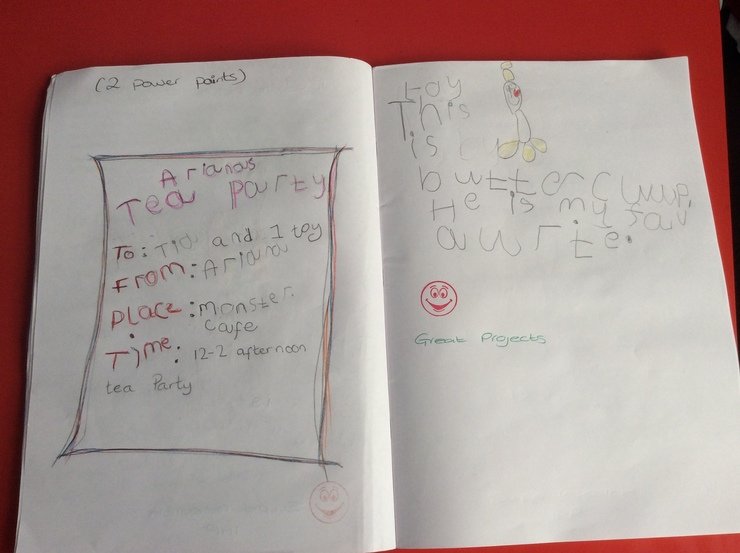 (2 power points)
Arianas
Tea party
To: Tia and 1 toy
From: Ariana
place: monster
cafe
Time: 12-2 afternoon
tea Party
toy
This
is
buttercuup.
He is my fav
awrite.
Great Projects